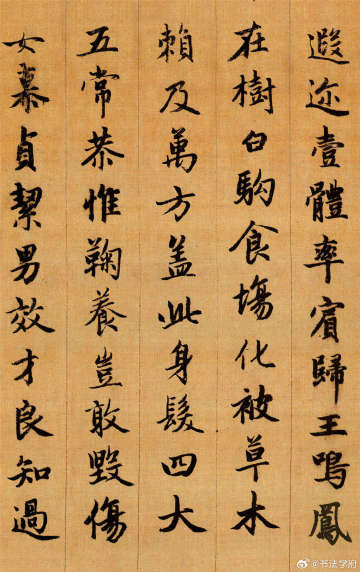 遐迩壹體率賓歸王鳴鳳
在樹白駒食塲化被草木
賴及萬方盖此身髮四大
五常恭惟鞠養豈敢毀傷
女慕貞絜男效才良知過
@书法学府